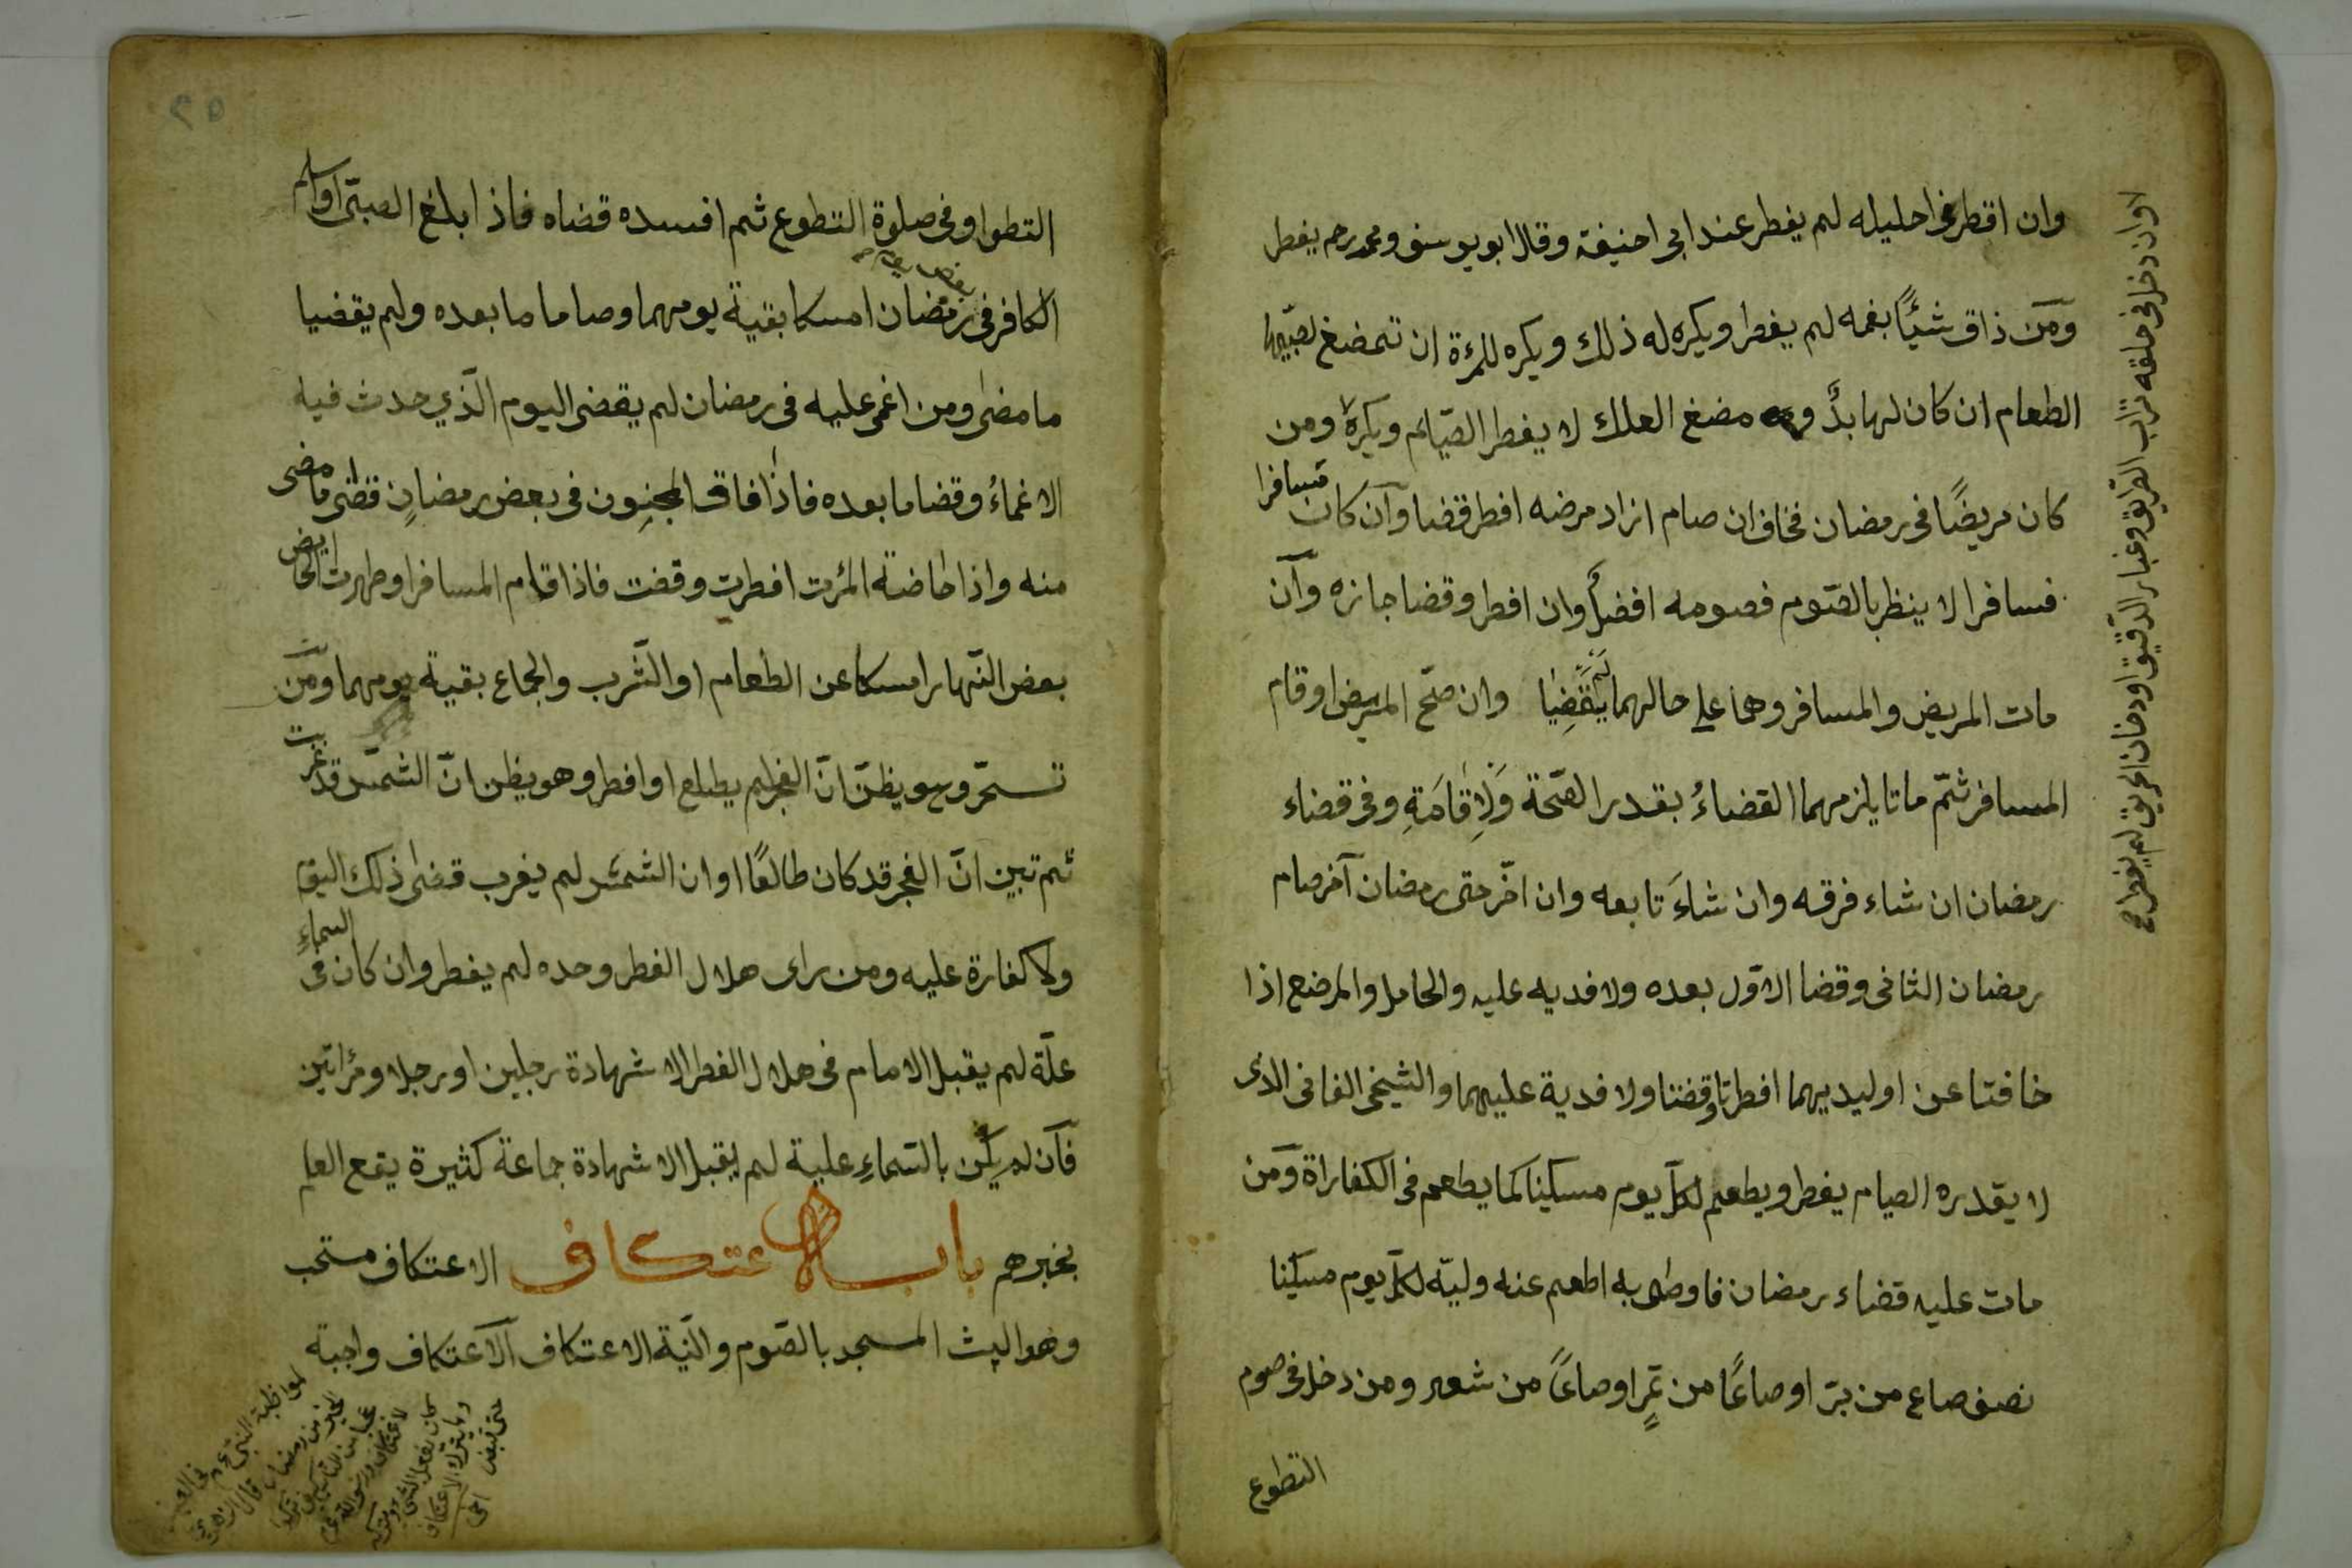 وان اقطر في احليله لم يفطر عند ابي احنيفة وقال ابو يوسف ومحمد رحم يفطر
ومن ذاق شيئًا بفمه لم يفطر ويكره له ذلك ويكره للمرة ان تمضغ لصبيها
الطعام ان كان لها بدٌ و مضغ العلك لا يفطر الصيايم ويكره ومن
كان مريضًا في رمضان فخاف ان صام ازاد مرضه افطر قضا وان كان مسافرا
فسافرا لا ينظر بالصوم فصومه افضل وان افطر وقضا جازه وان
مات المريض والمسافر وهما على حالهما لم يقضيا وان صح المريض او قام
المسافر ثمّ ماتا يلزمهما القضاءُ بقدر الصّحة ولاِقامَةِ وفي قضاء
رمضان ان شاء فرقه وان شاءَ تابعه وان اخّر حتى رمضان آخر صام
رمضان الثانى وقضا الاوّل بعده ولا فديه عليه والحامل والمرضع اذا
خافتا عن اوليديهما افطرتا وقضتا ولا فدية عليهما والشيخى الفانى الذى
لا يقدره الصيام يفطر ويطعم لكلّ يوم مسكينا كما يطعم فى الكفاراة ومن
مات عليه قضاء رمضان فاوطى به اطعم عنه وليّه لكلّ يوم مسكينا
نصف صاع من برّ او صاعًا من تمرٍ او صاعًا من شعير ومن دخل فى صوم
التطوع
او ان دخل فى حلقه تراب الطريق وغبار الدقيق او دخان الحريق لم يفطر
التطوا وفى صلوة التطوع ثم افسده قضاه فاذا بلغ الصبّى او اسلم
الكافر فى رمضان امسكا بقية يومهما وصاما ما بعده ولم يقضيا
ما مضىٰ ومن اغمى عليه فى رمضان لم يقضى اليوم الّذي حدث فيه
الاغماءُ وقضا ما بعده فاذا افاق المجنون فى بعض رمضان قضى ما مضى
منه واذا حاضة المرٔت افطرت وقضت فاذا قدم المسافر او طهرت الحايض
بعض النّهار امسكا عن الطعام او الشّرب والجماع بقية يومهما ومن
تسحّر وهو يظنّ انّ الفجر لم يطلع او افطر وهو يظن انّ الشمس قد غربت
ثم تبين انّ الفجر قد كان طالعًا او ان الشمس لم يغرب قضىٰ ذلك اليوم
ولا كفارة عليه ومن راى هلال الفطر وحده لم يفطر وان كان فى السماءِ
علّة لم يقبل الامام فى هلال الفطر الا شهادة رجلين او رجلا ومرٔاتين
فان لم يكن بالسّماءِ علية لم يقبل الا شهادة جماعة كثيرة يقع العلم
بخبرهم باب الاعتكاف الاعتكاف مستحب
وهو البث المسجد بالصّوم والنّية الاعتكاف الاعتكاف واجبة
لمواظبة النبى عم فى العشر